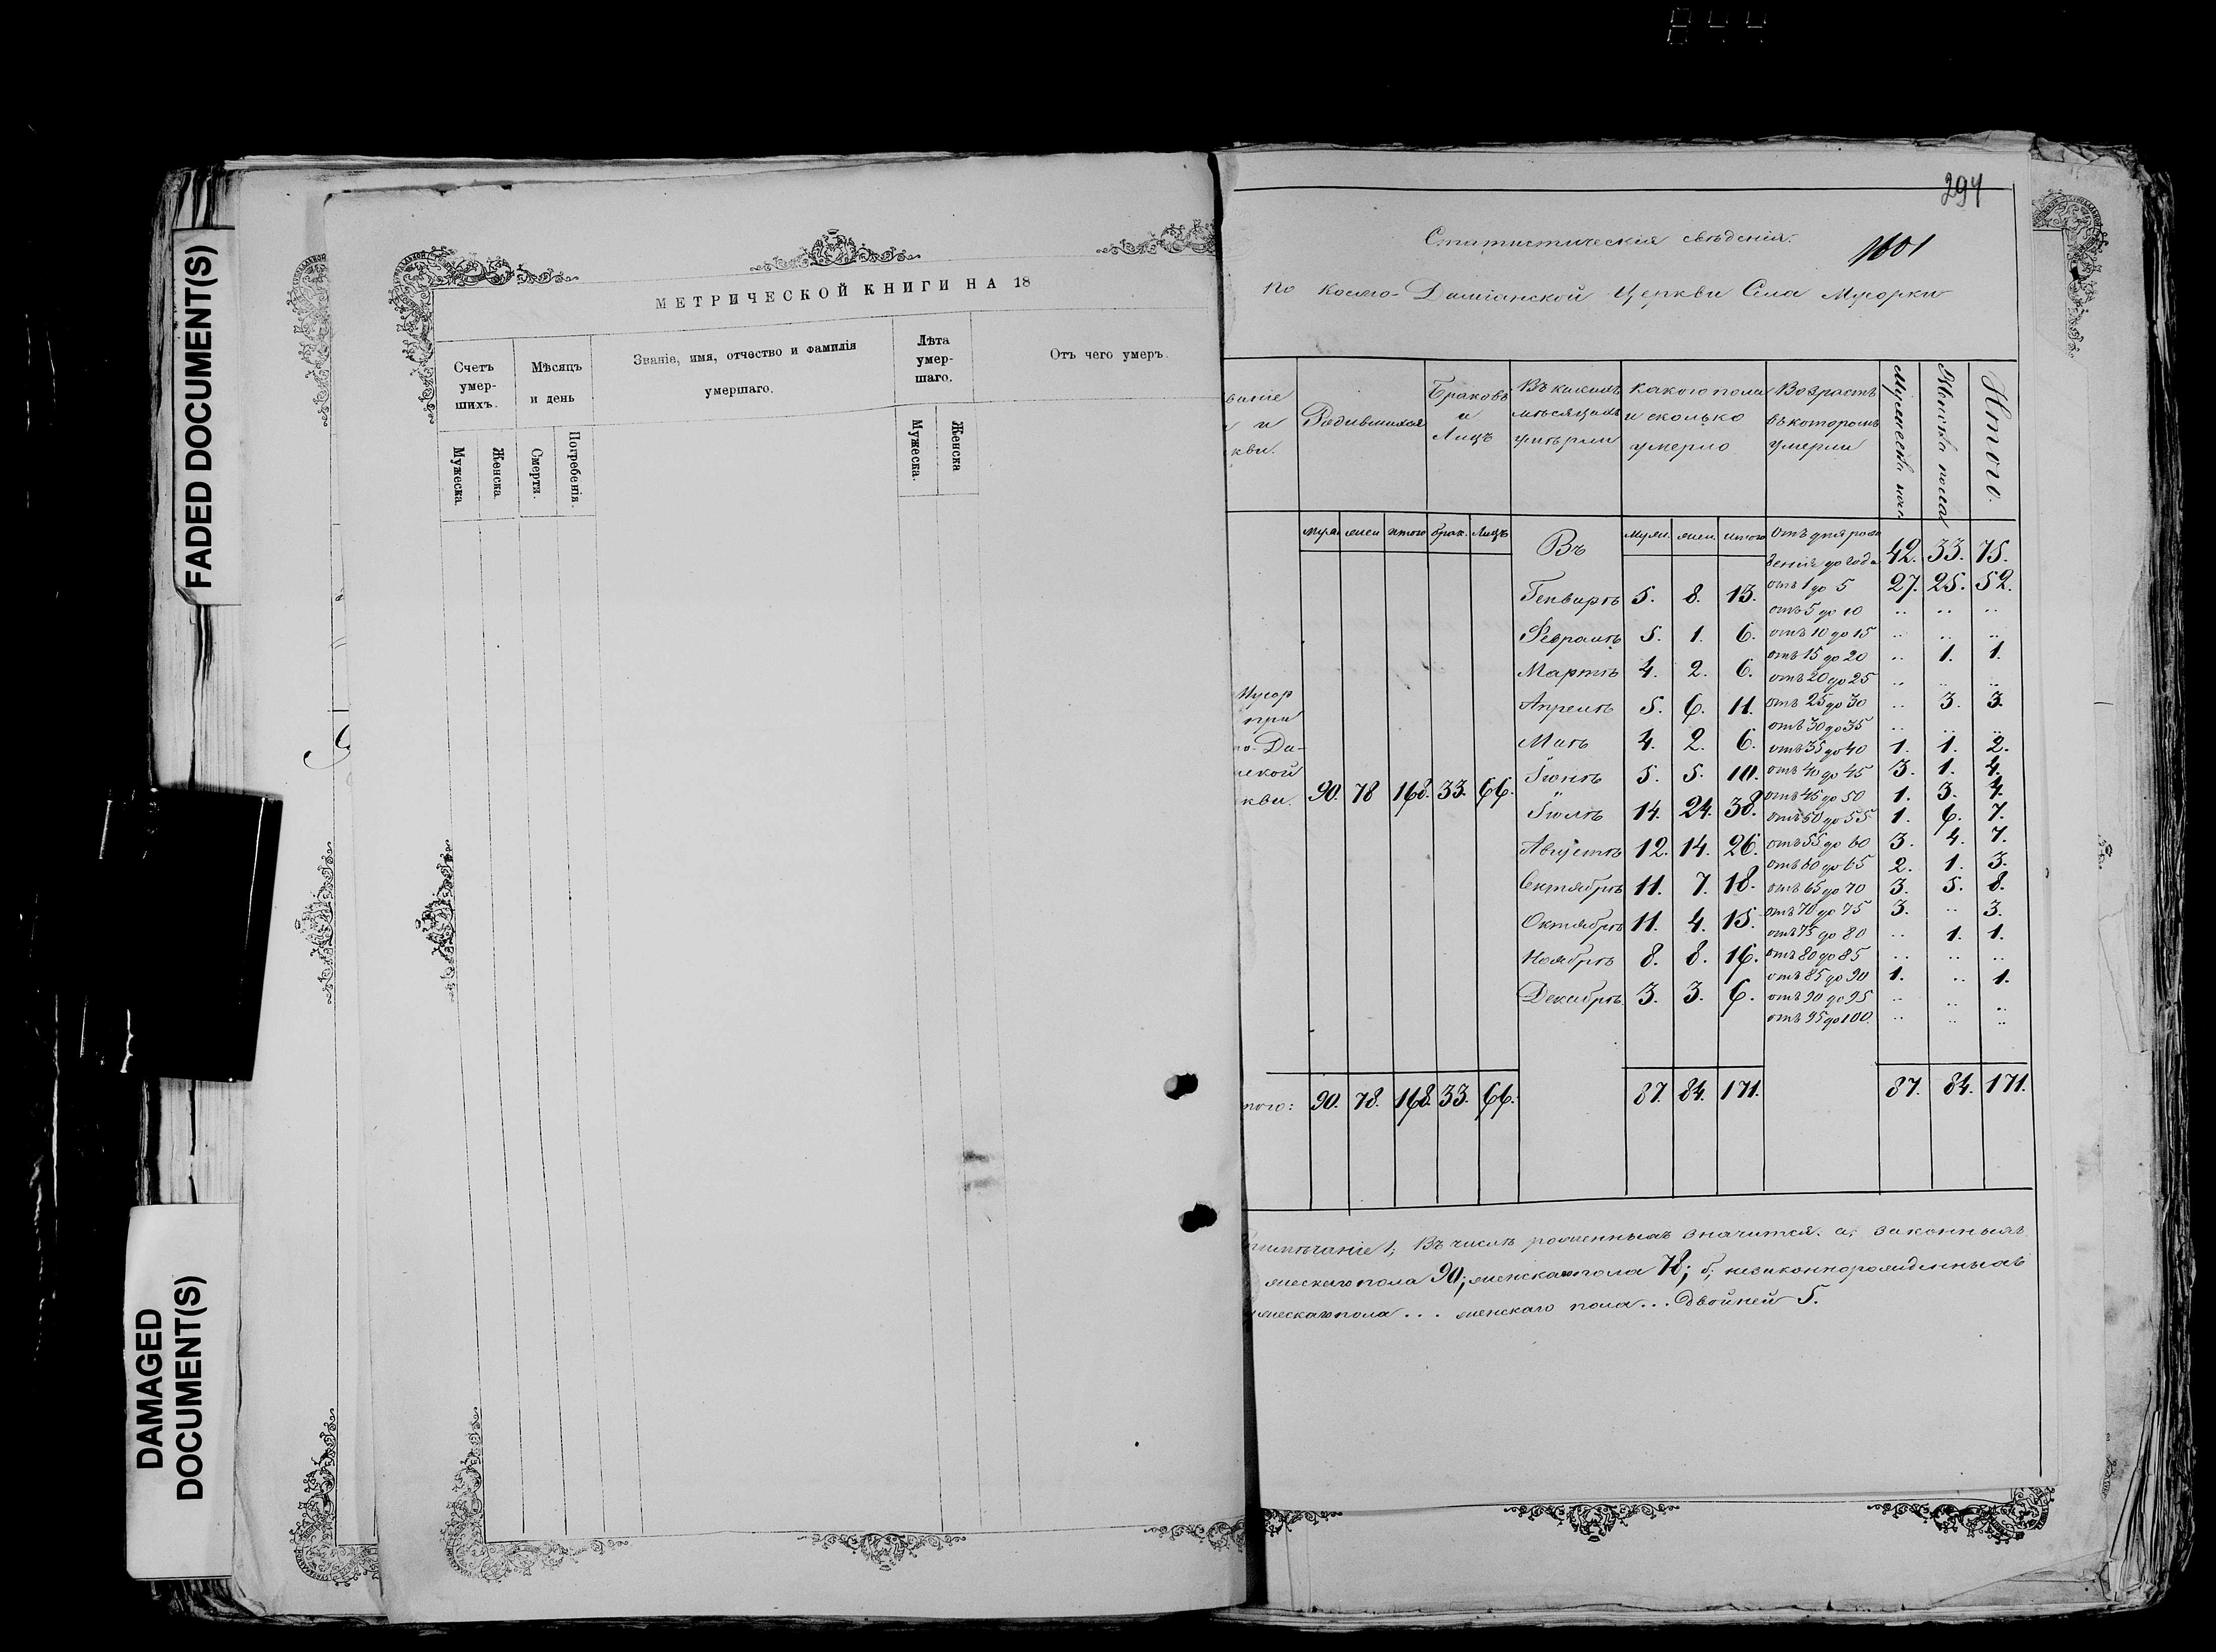 844
FADED DOCUMENT(S)
DAMAGED
DOCUMENT(S)
МЕТРИЧЕСКОЙ КНИГИ НА 18
Счетъ умер- шихъ.
Мѣсяцъ и день
Званіе, имя, отчество и фамилія
умершаго.
Лѣта умер- шаго.
Отъ чего умеръ.
Мужеска.
Женска.
Смерти.
Погребенія.
Мужеска.
Женска
294
Статистическія свѣденія.
1601
по Космо-Даміанской Церкви Села Мусорки
ваніе
и
кви.
Родившихся
Браковъ и Лицъ
Въ какихъ мѣсяцахъ умѣрли
Какого пола и сколько умерло
Возрастъ въ которомъ умерли
Женска пола
Итого.
муж. жен итого брак. Лицъ
Въ
муж. жен. итого
Отъ дня рож
денія до года 42. 33. 75.
отъ 1 до 5 27. 25. 52.
отъ 5 до 10 .. .. ..
отъ 10 до 15 .. .. ..
отъ 15 до 20 .. 1. 1.
отъ 20 до 25 .. .. ..
отъ 25 до 30 .. 3. 3.
отъ 30 до 35 .. .. ..
отъ 35 до 40 1. 1. 2.
отъ 40 до 45 3. 1. 4.
отъ 45 до 50 1. 3. 4.
отъ 50 до 55 1. 6. 7.
отъ 55 до 60 3. 4. 7.
отъ 60 до 65 2. 1. 3.
отъ 65 до 70 3. 5. 8.
отъ 70 до 75 3. .. 3.
отъ 75 до 80 .. 1. 1.
отъ 80 до 85 .. .. ..
отъ 85 до 90 1. .. 1.
отъ 90 до 95 .. .. ..
отъ 95 до 100. .. .. ..
Генварѣ 5. 8. 13.
Февралѣ 5. 1. 6.
Мартѣ 4. 2. 6.
Апрелѣ 5. 6. 11.
Маѣ 4. 2. 6.
Іюнѣ 5. 5. 10.
Іюлѣ 14. 24. 38.
Августѣ 12. 14. 26.
Сентябрѣ 11. 7. 18.
Октябрѣ 11. 4. 15.
Ноябрѣ 8. 8. 16.
Декабрѣ 3. 3. 6.
Мусор
при
о-Да-
ской
кви. 90. 78 168. 33. 66.
того: 90. 78. 168. 33. 66. 87. 84. 171. 87. 84. 171.
римѣчаніе 1; Въ числѣ рожденныхъ значится: а; законныхъ
жескаго пола 90; женскаго пола 78; б; незаконнорожденныхъ
жескаго пола... женскаго пола... Двойней 5.